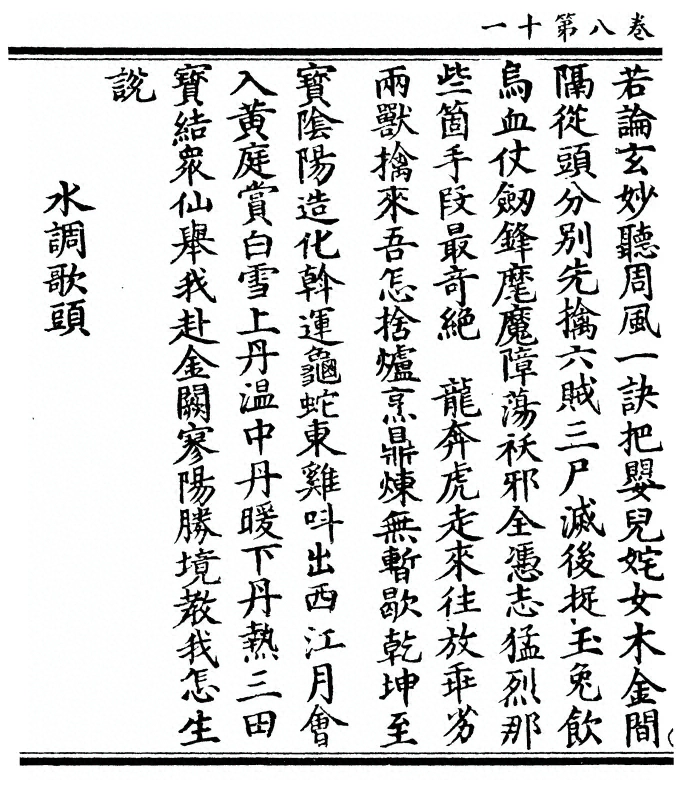 卷八第十一
若論玄妙聽周風一訣把嬰兒姹女木金間
隔從頭分別先擒六賊三尸滅後捉玉兔飲
烏血仗劒鋒麾魔障蕩袄邪全憑志猛烈那
些箇手段最奇絕　龍奔虎走來往放乖劣
兩獸擒來吾怎捨爐烹鼎煉無暫歇乾坤至
寶陰陽造化斡運龜蛇東雞呌出西江月會
入黃庭賞白雪上丹温中丹暖下丹熱三田
寶結衆仙舉我赴金闕寥陽勝境教我怎生
說
水調歌頭